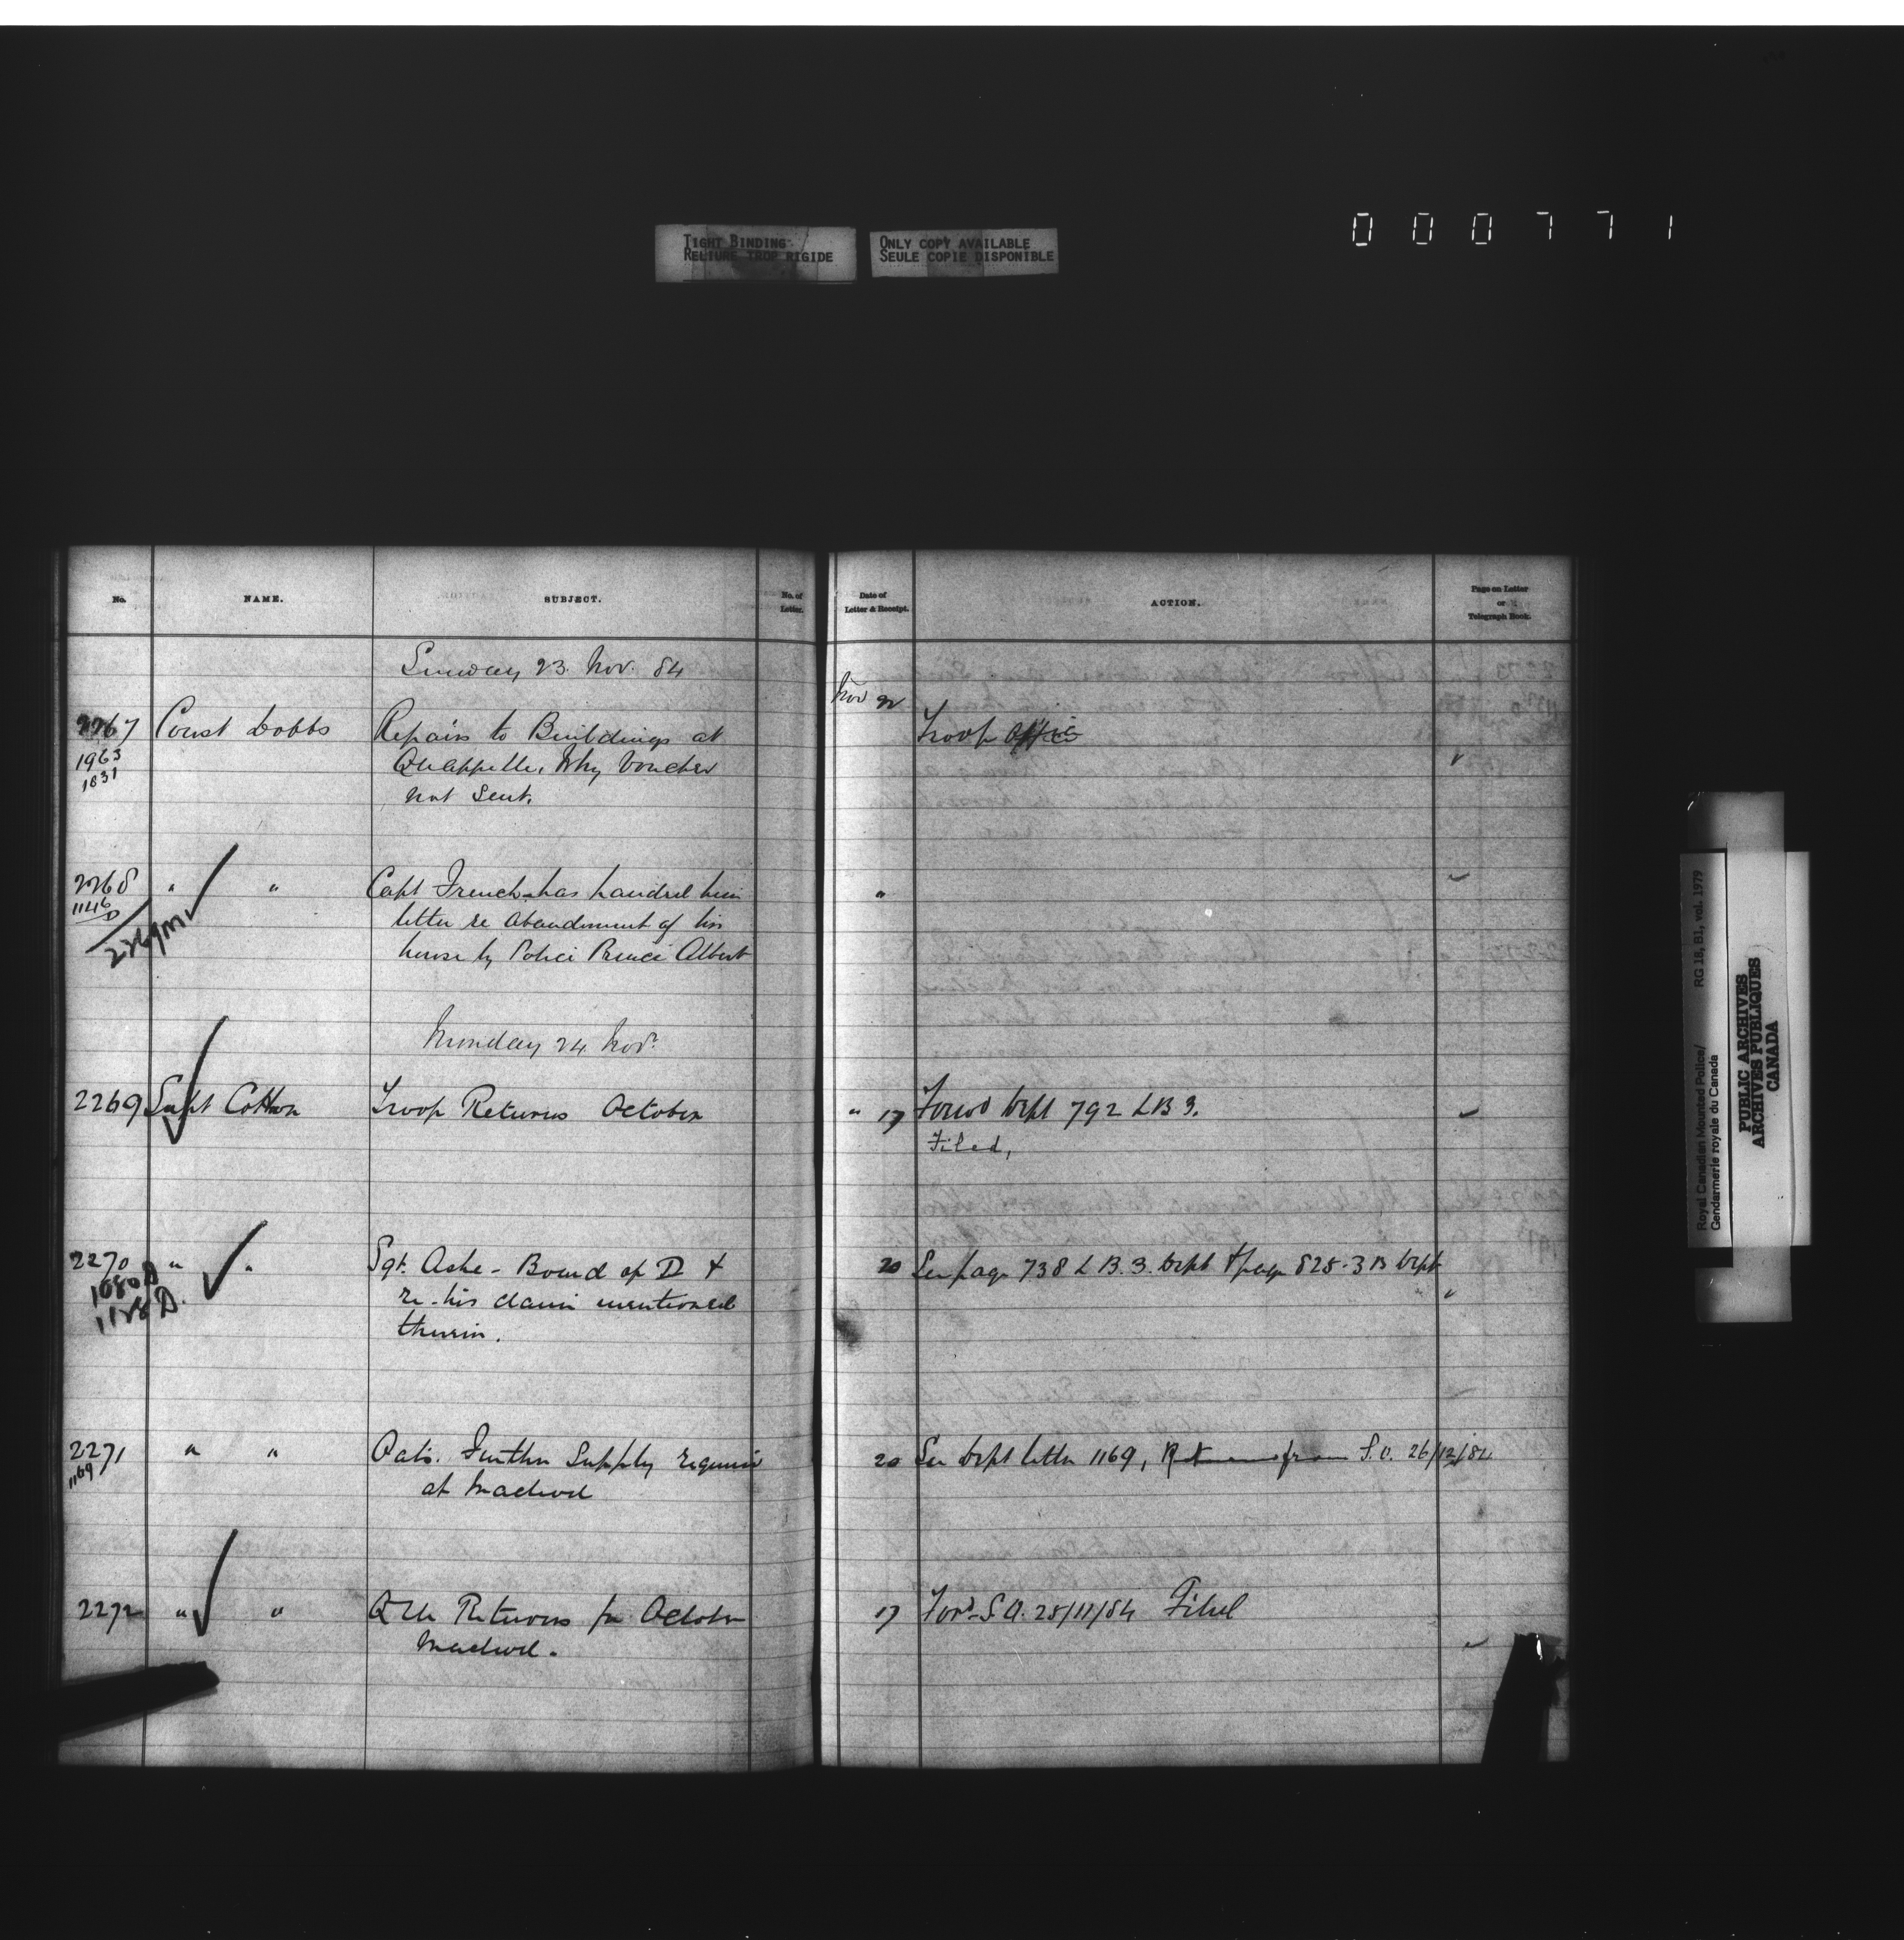 TIGHT BINDING
RELIURE TROP RIGIDE
ONLY COPY AVAILABLE
SEULE COPIE DISPONIBLE
000771
No. NAME. SUBJECT. No. of Letter. Date of Letter & Receipt. ACTION. Page on Letter or Telegraph Book.
Sunday 23. Nov. 84
Nov 22
2267 Const Dobbs Repairs to Buildings at Troop Office
1963 Quappelle, Why Voucher
1831 not sent.
2268 " " Capt French has handed him "
1146 D letter re abandonment of his
2269m house by Police Prince Albert
Monday 24 Novr.
2269 Supt Cotton Troop Returns October " 17 Forwd Dept 792 L B 3.
Filed,
2270 " " Sgt. Ashe - Board of D & 20 See page 738 L B. 3. Dept & page 825-3 B Dept
1080 D re his claim mentioned
1128 D. therein.
2271 " " Oats. Further Supply required 20 See Dept letter 1169, Returned from S.O. 26/12/84
1169 at Macleod
2272 " " Q M Returns for October 17 Ford. S.O. 28/11/84 Filed
Macleod.
Royal Canadian Mounted Police/ RG 18, B1, vol. 1979
Gendarmerie royale du Canada
PUBLIC ARCHIVES
ARCHIVES PUBLIQUES
CANADA